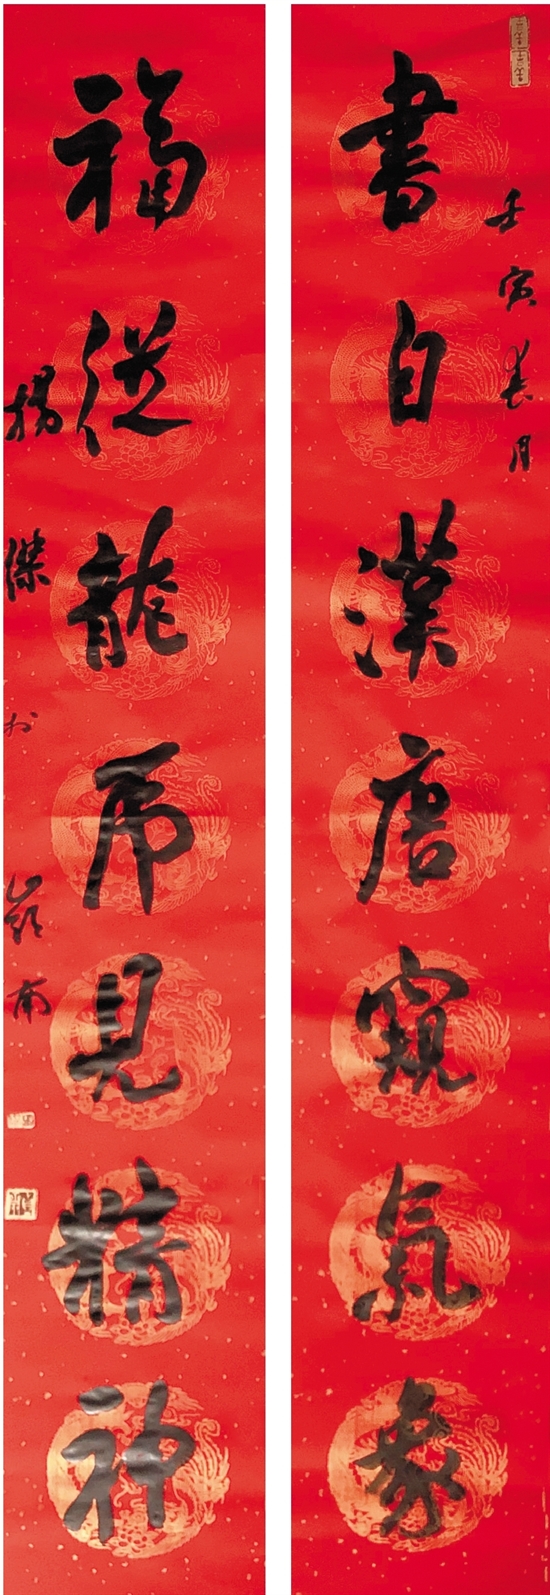 壬寅春月
書自漢唐窺氣象
福從龍虎見精神
楊傑於嶺南